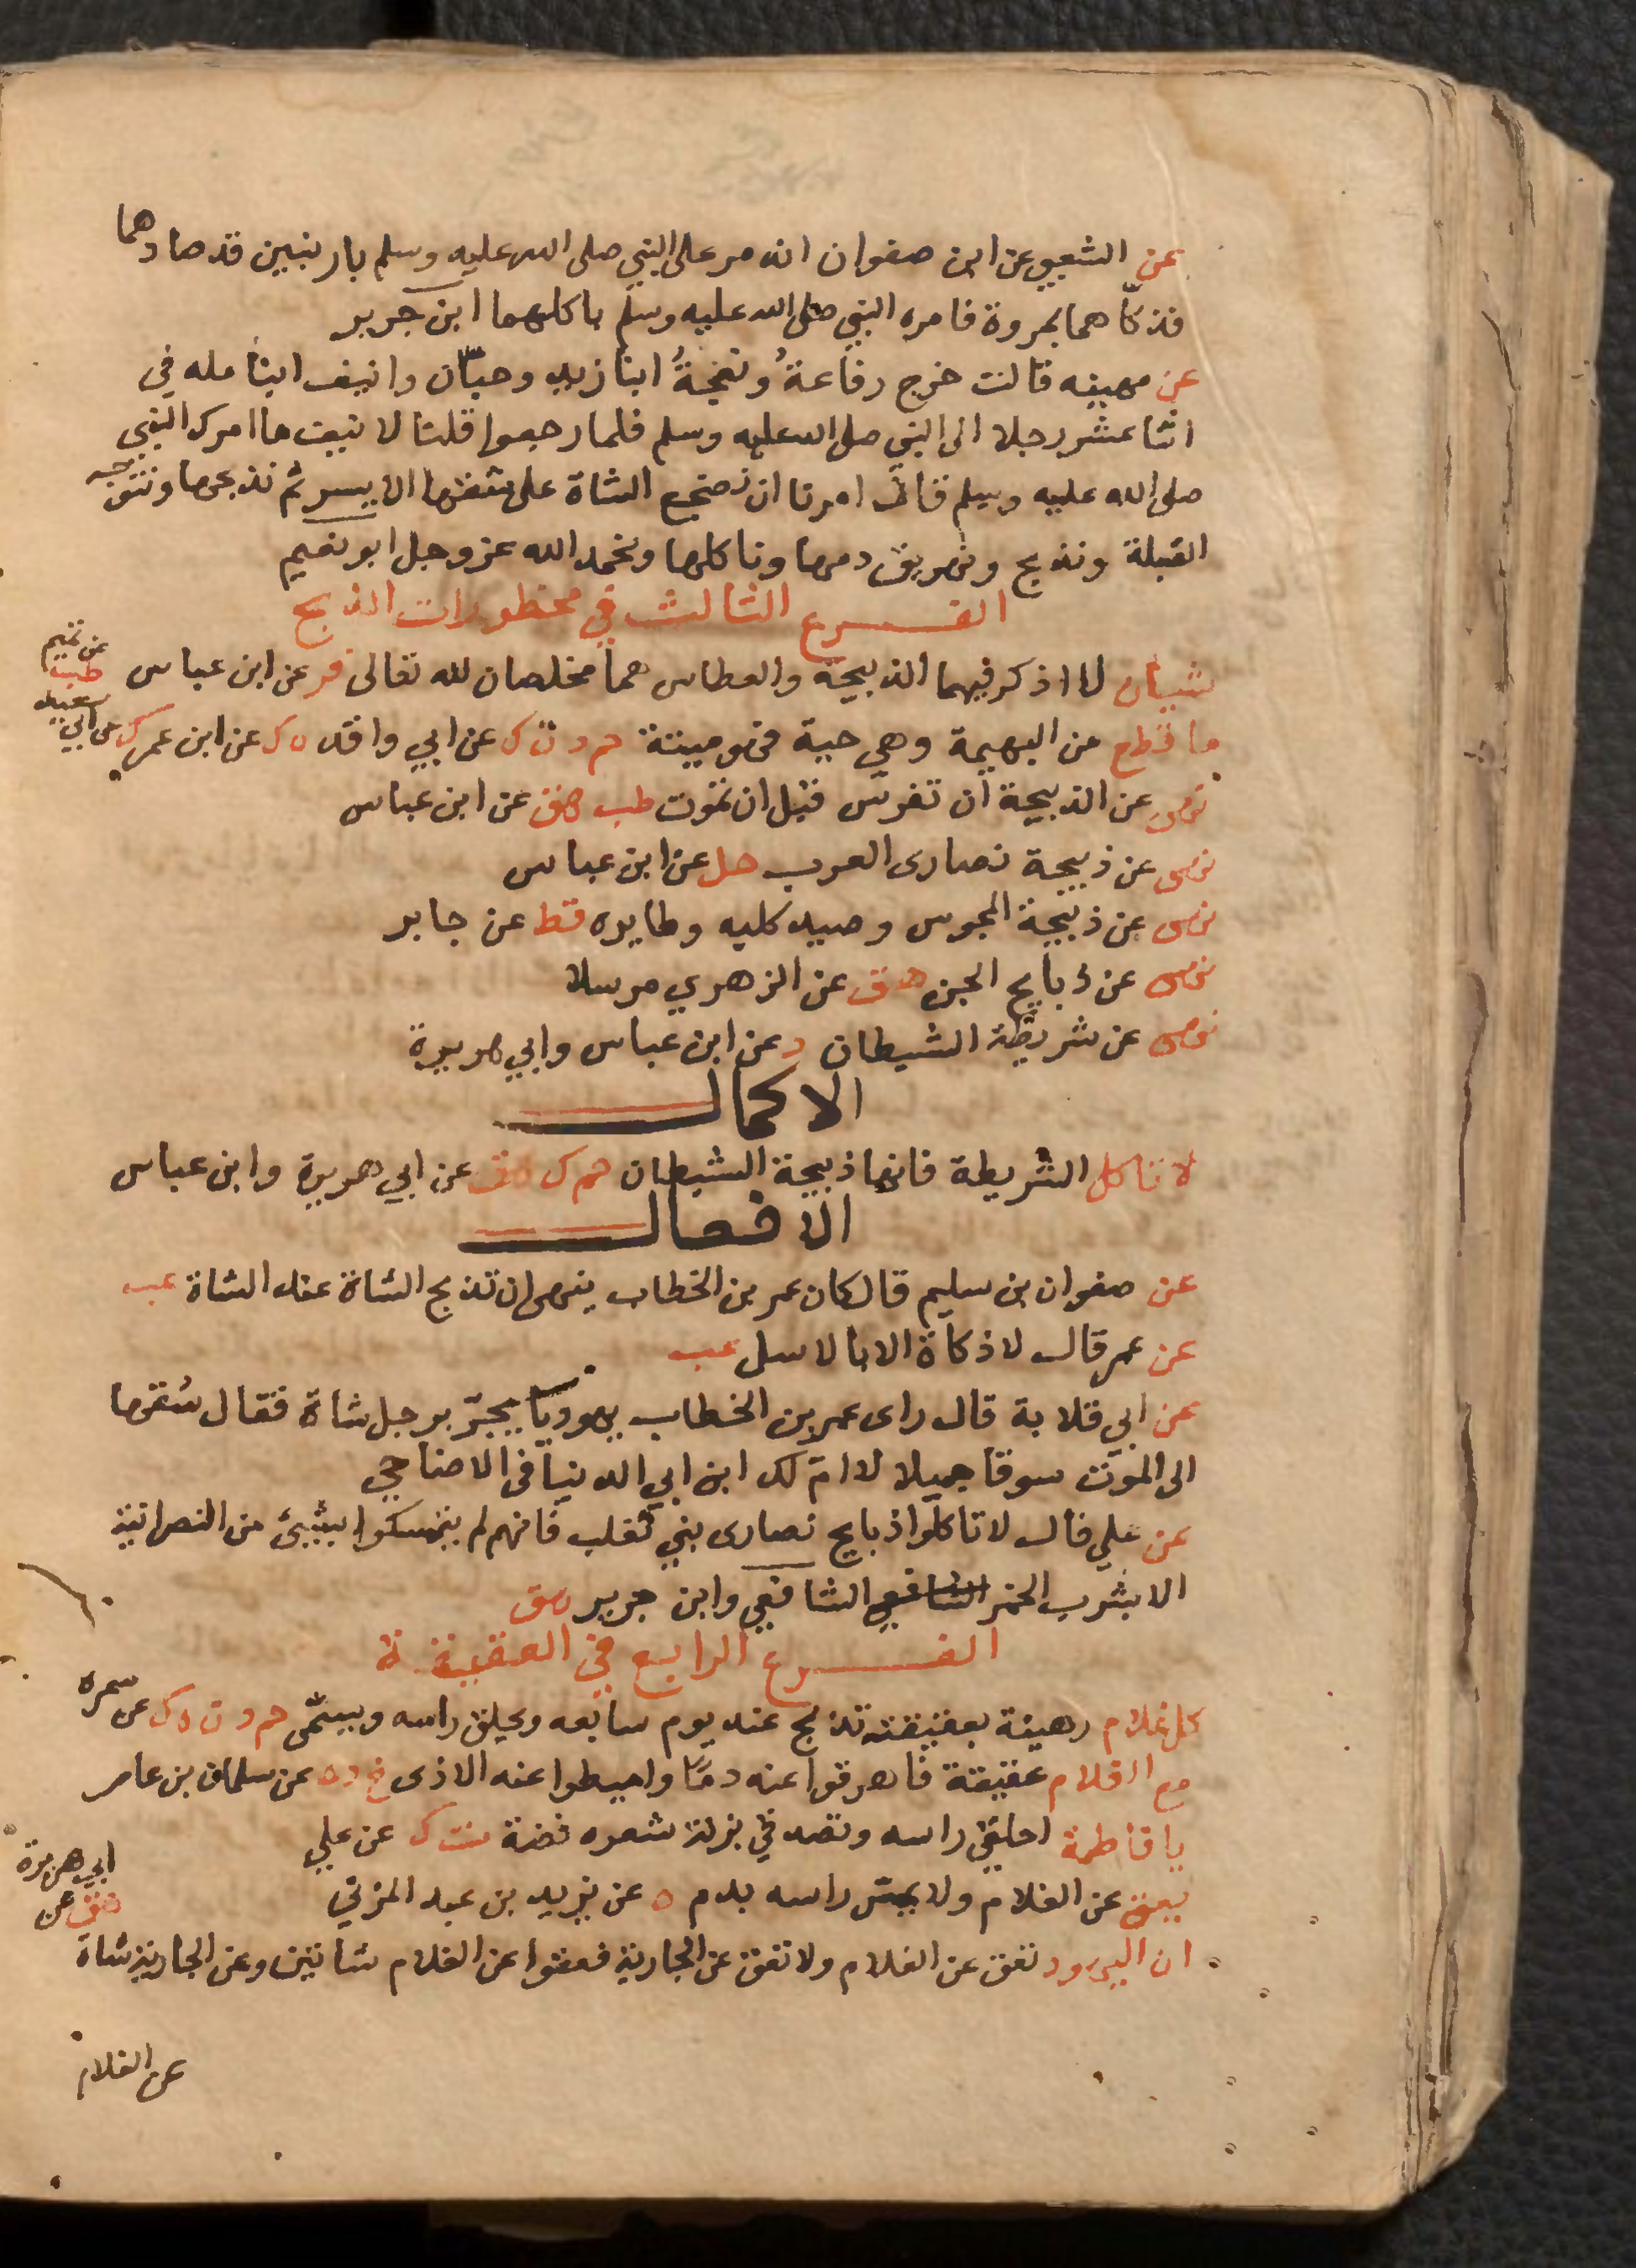 عن الشعبي عن ابن صفوان انه مر على النبي صلى الله عليه وسلم بارنبين قد صادهما
فذكاهما بمروة فامره النبي صلى الله عليه وسلم باكلهما ابن جرير
عن مهينه قالت خرج رفاعةُ وتخجةُ ابنا زيد وحبّان وانيف ابنا مله في
اثنا عشر رجلا الى النبي صلى الله عليه وسلم فلما رجعوا قلنا لانيف ما امرك النبي
صلى الله عليه وسلم قال امرنا ان نضجع الشاة على شقها الايسر ثم نذبحها ونتوجه
القبلة ونذبح ونهريق دمها وناكلها ونحمد الله عز وجل ابو نعيم
الفرع الثالث في محظورات الذبح
شيئان لا اذكر فيهما الذبيحة والعطاس هما مخلصان لله تعالى فر عن ابن عباس
عن تميم
طب
ما قطع من البهيمة وهي حية فهو ميتة حم د ت ك عن ابي واقد ه ك عن ابن عمر ك عن ابي
سعيد
نهى عن الذبيحة ان تفرس قبل ان تموت طب هق عن ابن عباس
نهى عن ذبيحة نصارى العرب حل عن ابن عباس
نهى عن ذبيحة المجوس وصيد كلبه وطايره قط عن جابر
نهى عن ذبايح الجن هق عن الزهري مرسلا
نهى عن شريطة الشيطان د عن ابن عباس وابي هريرة
الاكمال
لا تاكل الشريطة فانها ذبيحة الشيطان حم ك هق عن ابي هريرة وابن عباس
الافعال
عن صفوان بن سليم قال كان عمر بن الخطاب ينهى ان تذبح الشاة عند الشاة عب
عن عمر قال لا ذكاة الا بالاسل عب
عن ابي قلابة قال راى عمر بن الخطاب يهوديا يجرّ برجل شاة فقال سقها
الى الموت سوقا جميلا لا امّ لك ابن ابي الدنيا في الاضاحي
عن علي قال لا تاكلوا ذبايح نصارى بني تغلب فانهم لم يتمسكوا بشيئ من النصرانية
الا بشرب الخمر الشافعي الشافعي وابن جرير هق
الفرع الرابع في العقيقة
كل غلام رهينة بعقيقته تذبح عنه يوم سابعه ويحلق راسه ويسمّى حم د ن ه ك عن سمره
مع الغلام عقيقة فاهرقوا عنه دمًا واميطوا عنه الاذى خ د ه عن سلمان بن عامر
يا فاطمة احلقي راسه وتصدقي بزنة شعره فضة ت ك عن علي
يعق عن الغلام ولا يمس راسه بدم ه عن يزيد بن عبد المزني
ان اليهود تعق عن الغلام ولا تعق عن الجارية فعقوا عن الغلام شاتين وعن الجارية شاة
هق عن
ابي هريرة
عن الغلام